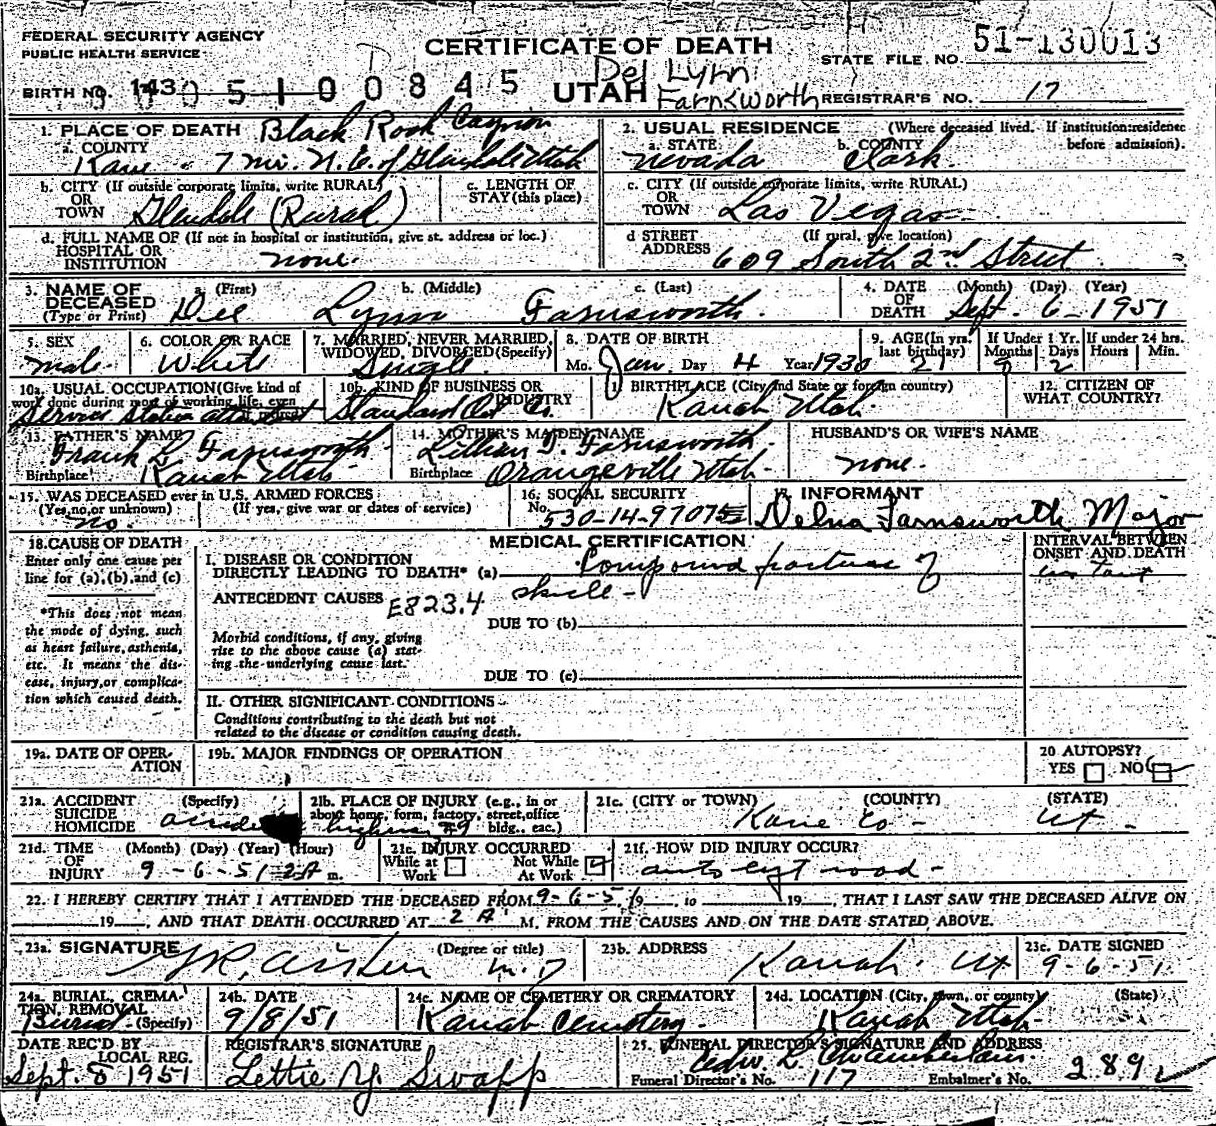 FEDERAL SECURITY AGENCY
PUBLIC HEALTH SERVICE
CERTIFICATE OF DEATH
STATE FILE NO. 51-130013
BIRTH NO. 143 0 5 1 0 0 8 4 5
UTAH
Del Lynn
Farnsworth
REGISTRAR'S NO. 17
1. PLACE OF DEATH Black Rock Canyon
a. COUNTY
Kane 7 mi. N.E. of Glendale Utah
2. USUAL RESIDENCE (Where deceased lived. If institution:residence before admission).
a. STATE b. COUNTY
Nevada Clark
b. CITY (If outside corporate limits, write RURAL)
OR
TOWN Glendale (Rural)
c. LENGTH OF
STAY (this place)
c. CITY (If outside corporate limits, write RURAL)
OR
TOWN Las Vegas
d. FULL NAME OF (If not in hospital or institution, give st. address or loc.)
HOSPITAL OR
INSTITUTION none.
d STREET (If rural, give location)
ADDRESS 609 South 2nd Street
3. NAME OF a. (First) b. (Middle) c. (Last)
DECEASED
(Type or Print) Del Lynn Farnsworth
4. DATE (Month) (Day) (Year)
OF
DEATH Sept. 6-1951
5. SEX
male
6. COLOR OR RACE
White
7. MARRIED, NEVER MARRIED,
WIDOWED, DIVORCED (Specify)
Single
8. DATE OF BIRTH
Mo. Jan Day 4 Year 1930
9. AGE (In yrs. last birthday) 21
If Under 1 Yr. Months 8 Days 2
If under 24 hrs. Hours Min.
10a. USUAL OCCUPATION (Give kind of work done during most of working life, even if retired)
Service Station attendant
10b. KIND OF BUSINESS OR INDUSTRY
Standard Oil Co.
BIRTHPLACE (City and State or foreign country)
Kanab Utah
12. CITIZEN OF
WHAT COUNTRY?
13. FATHER'S NAME
Frank L. Farnsworth
Birthplace Kanab Utah
14. MOTHER'S MAIDEN NAME
Lillian T. Farnsworth
Birthplace Orangeville Utah
HUSBAND'S OR WIFE'S NAME
none.
15. WAS DECEASED ever in U.S. ARMED FORCES
(Yes, no, or unknown) (If yes, give war or dates of service)
no.
16. SOCIAL SECURITY
No. 530-14-9707
17. INFORMANT
Delna Farnsworth Major
18. CAUSE OF DEATH
Enter only one cause per
line for (a), (b), and (c)
*This does not mean
the mode of dying, such
as heart failure, asthenia,
etc. It means the dis-
ease, injury, or complica-
tion which caused death.
MEDICAL CERTIFICATION
I. DISEASE OR CONDITION
DIRECTLY LEADING TO DEATH* (a) Compound fracture of
skull -
ANTECEDENT CAUSES E823.4
DUE TO (b)
Morbid conditions, if any, giving
rise to the above cause (a) stat-
ing the underlying cause last.
DUE TO (c)
II. OTHER SIGNIFICANT CONDITIONS
Conditions contributing to the death but not
related to the disease or condition causing death.
INTERVAL BETWEEN
ONSET AND DEATH
instant
19a. DATE OF OPER-
ATION
19b. MAJOR FINDINGS OF OPERATION
20 AUTOPSY?
YES NO
21a. ACCIDENT (Specify)
SUICIDE
HOMICIDE accident
21b. PLACE OF INJURY (e.g., in or
about home, form, factory, street, office
bldg., eac.)
highway 89
21c. (CITY or TOWN) (COUNTY) (STATE)
Kane Co - Ut -
21d. TIME (Month) (Day) (Year) (Hour)
OF
INJURY 9-6-51 2 A m.
21e. INJURY OCCURRED
While at Work Not While At Work
21f. HOW DID INJURY OCCUR?
auto left road -
22. I HEREBY CERTIFY THAT I ATTENDED THE DECEASED FROM 9-6-51, 19 , to , 19 , THAT I LAST SAW THE DECEASED ALIVE ON
, 19 , AND THAT DEATH OCCURRED AT 2 A M. FROM THE CAUSES AND ON THE DATE STATED ABOVE.
23a. SIGNATURE (Degree or title)
Aiken M.D
23b. ADDRESS
Kanab Ut
23c. DATE SIGNED
9-6-51
24a. BURIAL, CREMA-
TION, REMOVAL
(Specify) Burial
24b. DATE
9/8/51
24c. NAME OF CEMETERY OR CREMATORY
Kanab Cemetery.
24d. LOCATION (City, town, or county) (State)
Kanab Utah
DATE REC'D BY
LOCAL REG.
Sept. 8 1951
REGISTRAR'S SIGNATURE
Lettie Y. Swapp
25. FUNERAL DIRECTOR'S SIGNATURE AND ADDRESS
L. Chamberlain.
Funeral Director's No. 117 Embalmer's No. 289